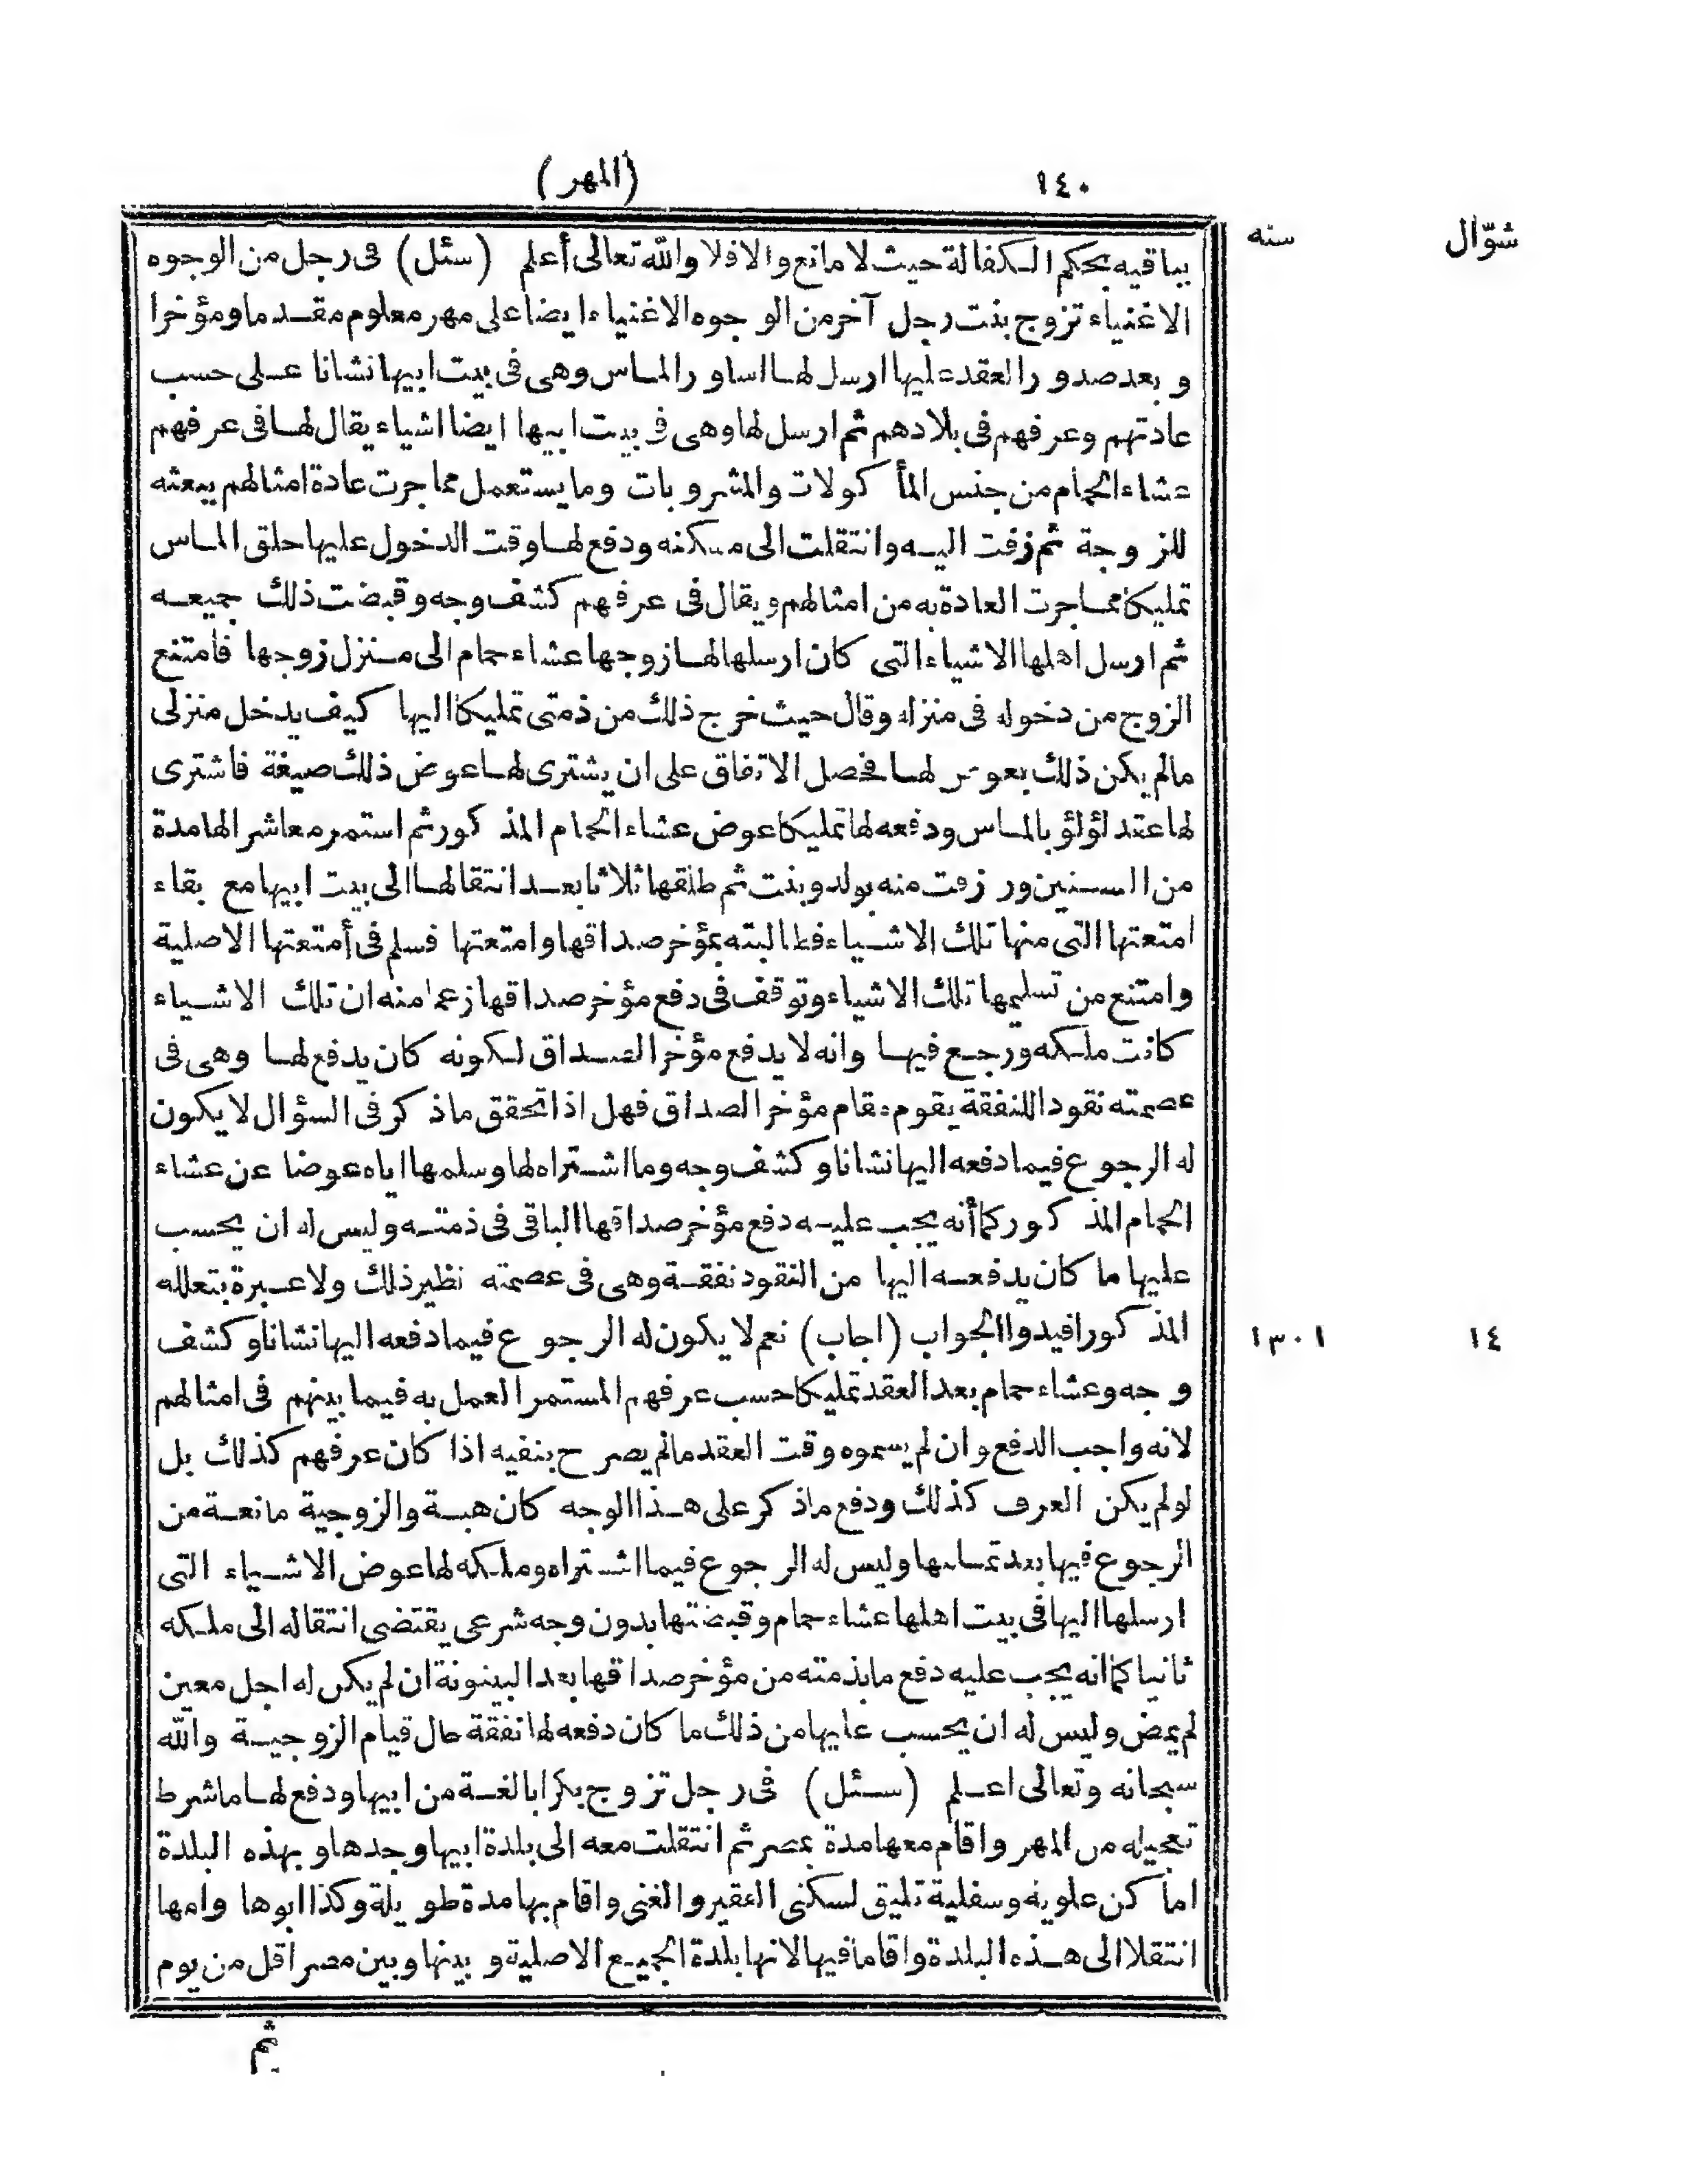 ١٤٠ (المهر)
شوّال سنه
بباقيه بحكم الكفالة حيث لا مانع والا فلا والله تعالى أعلم (سئل) فى رجل من الوجوه
الاغنياء تزوج بنت رجل آخر من الوجوه الاغنياء ايضا على مهر معلوم مقدما ومؤخرا
وبعد صدور العقد عليها ارسل لها اساور الماس وهى فى بيت ابيها نشانا على حسب
عادتهم وعرفهم فى بلادهم ثم ارسل لها وهى فى بيت ابيها ايضا اشياء يقال لها فى عرفهم
عشاء الحمام من جنس المأكولات والمشروبات وما يستعمل مما جرت عادة امثالهم ببعثه
للزوجة ثم زفت اليه وانتقلت الى مسكنه ودفع لها وقت الدخول عليها حلق الماس
تمليكا مما جرت العادة به من امثالهم ويقال فى عرفهم كشف وجه وقبضت ذلك جميعه
ثم ارسل اهلها الاشياء التى كان ارسلها لها زوجها عشاء حمام الى منزل زوجها فامتنع
الزوج من دخوله فى منزله وقال حيث خرج ذلك من ذمتى تمليكا اليها كيف يدخل منزلى
مالم يكن ذلك بعوض لها فحصل الاتفاق على ان يشترى لها عوض ذلك صيغة فاشترى
لها عقد لؤلؤ بالماس ودفعه لها تمليكا عوض عشاء الحمام المذكور ثم استمر معاشر الها مدة
من السنين ورزقت منه بولد وبنت ثم طلقها ثلاثا بعد انتقالها الى بيت ابيها مع بقاء
امتعتها التى منها تلك الاشياء فطالبته بمؤخر صداقها وامتعتها فسلم فى أمتعتها الاصلية
وامتنع من تسليمها تلك الاشياء وتوقف فى دفع مؤخر صداقها زعما منه ان تلك الاشياء
كانت ملكه ورجع فيها وانه لا يدفع مؤخر الصداق لكونه كان يدفع لها وهى فى
عصمته نقودا للنفقة يقوم مقام مؤخر الصداق فهل اذا تحقق ما ذكر فى السؤال لا يكون
له الرجوع فيما دفعه اليها نشانا وكشف وجه وما اشتراه لها وسلمها اياه عوضا عن عشاء
الحمام المذكور كما أنه يجب عليه دفع مؤخر صداقها الباقى فى ذمته وليس له ان يحسب
عليها ما كان يدفعه اليها من النقود نفقة وهى فى عصمته نظير ذلك ولا عبرة بتعلله
المذكور افيدوا الجواب (اجاب) نعم لا يكون له الرجوع فيما دفعه اليها نشانا وكشف ١٣٠١ ١٤
وجه وعشاء حمام بعد العقد تمليكا حسب عرفهم المستمر العمل به فيما بينهم فى امثالهم
لانه واجب الدفع وان لم يسموه وقت العقد مالم يصرح بنفيه اذا كان عرفهم كذلك بل
لو لم يكن العرف كذلك ودفع ما ذكر على هذا الوجه كان هبة والزوجية مانعة من
الرجوع فيها بعد تمامها وليس له الرجوع فيما اشتراه وملكه لها عوض الاشياء التى
ارسلها اليها فى بيت اهلها عشاء حمام وقبضتها بدون وجه شرعى يقتضى انتقاله الى ملكه
ثانيا كما انه يجب عليه دفع ما بذمته من مؤخر صداقها بعد البينونة ان لم يكن له اجل معين
لم يمض وليس له ان يحسب عليها من ذلك ما كان دفعه لها نفقة حال قيام الزوجية والله
سبحانه وتعالى اعلم (سئل) فى رجل تزوج بكرا بالغة من ابيها ودفع لها ما شرط
تعجيله من المهر واقام معها مدة بمصر ثم انتقلت معه الى بلدة ابيها وجدها وبهذه البلدة
اماكن علوية وسفلية تليق لسكنى الفقير والغنى واقام بها مدة طويلة وكذا ابوها وامها
انتقلا الى هذه البلدة واقاما فيها لانها بلدة الجميع الاصلية وبينها وبين مصر اقل من يوم
ثم